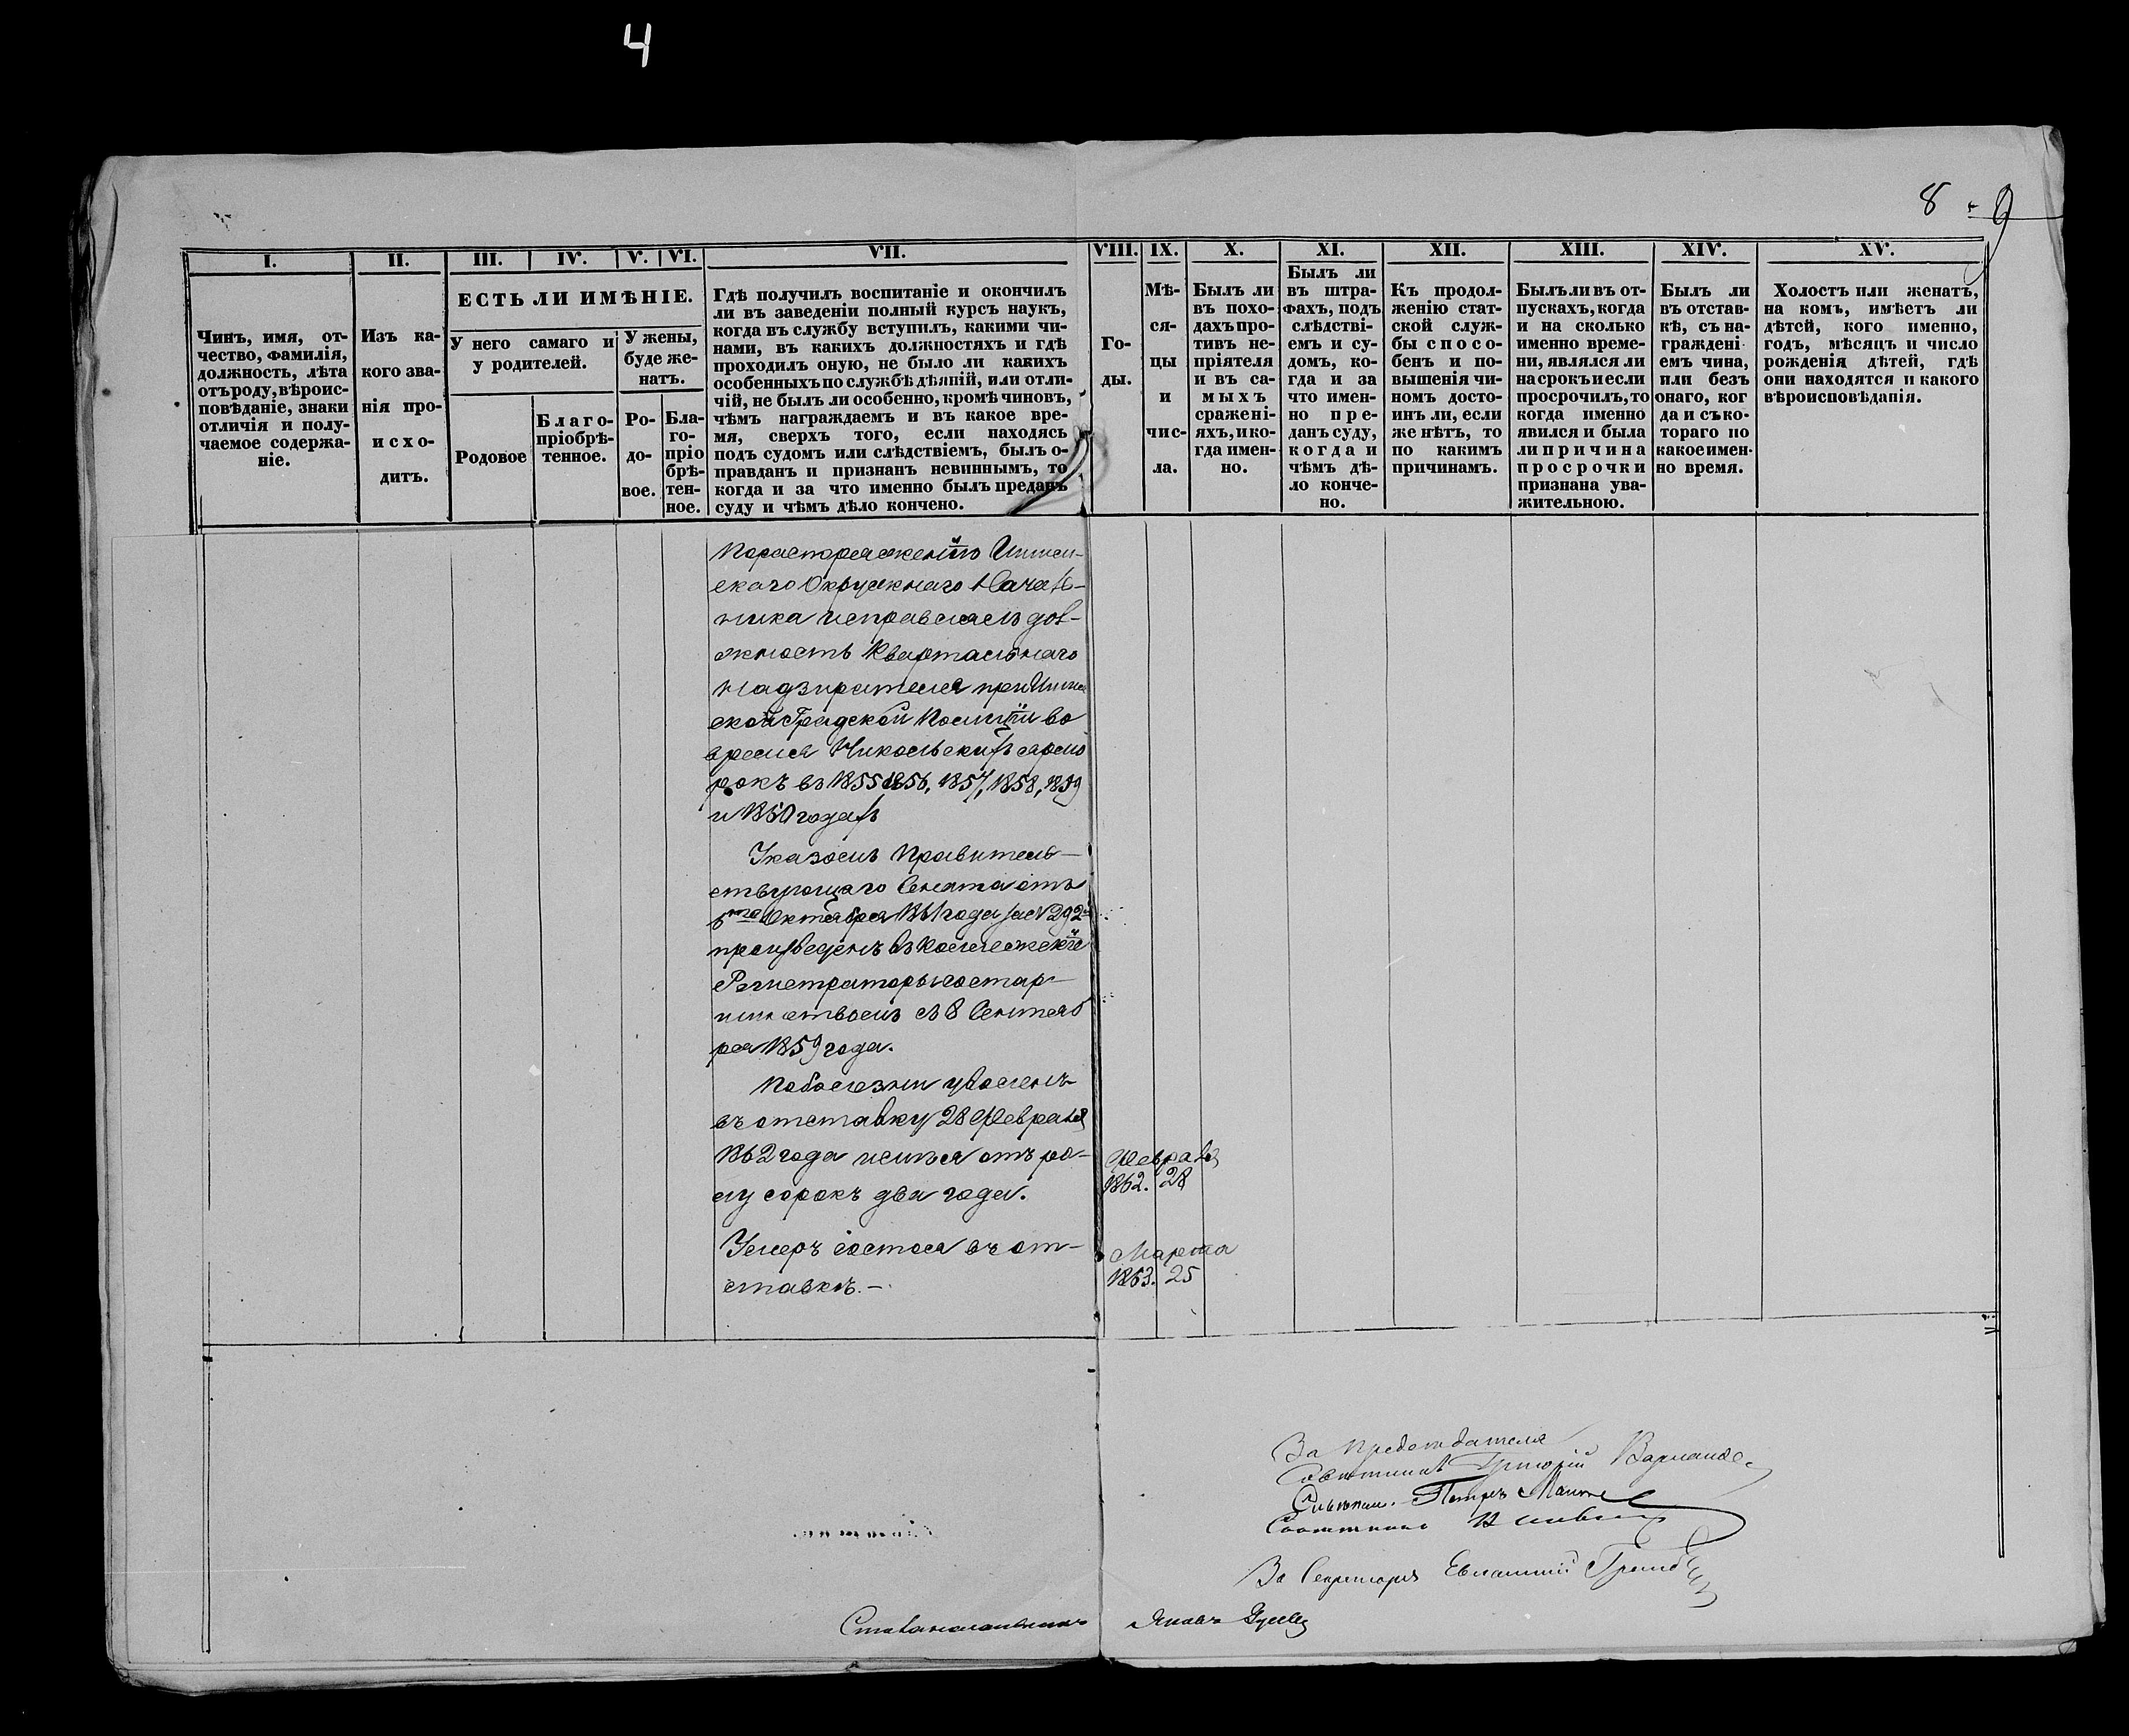 4
8 - 9
I.
II.
III.
IV.
V.
VI.
VII.
VIII.
IX.
X.
XI.
XII.
XIII.
XIV.
XV.
Чинъ, имя, от-
чество, фамилія,
должность, лѣта
отъ роду, вѣроис-
повѣданіе, знаки
отличія и полу-
чаемое содержа-
ніе.
Изъ ка-
кого зва-
нія про-
исхо-
дитъ.
ЕСТЬ ЛИ ИМѢНІЕ.
У него самаго и
у родителей.
У жены,
буде же-
натъ.
Родовое
Благо-
пріобрѣ-
тенное.
Ро-
до-
вое.
Бла-
го-
пріо
брѣ-
тен-
ное.
Гдѣ получилъ воспитаніе и окончилъ
ли въ заведеніи полный курсъ наукъ,
когда въ службу вступилъ, какими чи-
нами, въ какихъ должностяхъ и гдѣ
проходилъ оную, не было ли какихъ
особенныхъ по службѣ дѣяній, или отли-
чій, не былъ ли особенно, кромѣ чиновъ,
чѣмъ награждаемъ и въ какое вре-
мя, сверхъ того, если находясь
подъ судомъ или слѣдствіемъ, былъ о-
правданъ и признанъ невиннымъ, то
когда и за что именно былъ преданъ
суду и чѣмъ дѣло кончено.
Го-
ды.
Мѣ-
ся-
цы
и
чис-
ла.
Былъ ли
въ похо-
дахъ про-
тивъ не-
пріятеля
и въ са-
мыхъ
сражені-
яхъ, и ко-
гда имен-
но.
Былъ ли
въ штра-
фахъ, подъ
слѣдстві-
емъ и су-
домъ, ко-
гда и за
что имен-
но пре-
данъ суду,
когда и
чѣмъ дѣ-
ло конче-
но.
Къ продол-
женію стат-
ской служ-
бы спосо-
бенъ и по-
вышенія чи-
номъ досто-
инъ ли, если
же нѣтъ, то
по какимъ
причинамъ.
Былъ ли въ от-
пускахъ, когда
и на сколько
именно време-
ни, являлся ли
на срокъ и если
просрочилъ, то
когда именно
явился и была
ли причина
просрочки
признана ува-
жительною.
Былъ ли
въ отстав-
кѣ, съ на-
граждені
емъ чина,
или безъ
онаго, ког
да и съ ко-
тораго по
какое имен-
но время.
Холостъ или женатъ,
на комъ, имѣетъ ли
дѣтей, кого именно,
годъ, мѣсяцъ и число
рожденія дѣтей, гдѣ
они находятся и какого
вѣроисповѣданія.
По распоряженію Ишим-
скаго Окружнаго Началь-
ника исправлялъ дол-
жность Квартальнаго
Надзирателя при Ишим
ской Градской Полиціи во
время Никольскихъ ярмо
рокъ въ 1855 1856, 1857, 1858, 1859
и 1860 годахъ
Указомъ Правитель-
ствующаго Сената отъ
6го Октября 1861 года за № 292
произведенъ въ Коллежскіе
Регистраторы со стар-
шинствомъ съ 8 Сентяб
ря 1859 года.
По болезни уволенъ
въ отставку 28 Февраля
1862 года имѣя отъ ро-
ду сорокъ два года.
Февраля
1862. 28
Умеръ состоя въ от-
ставкѣ.-
Марта
1863. 25
За Предсѣдателя
Совѣтникъ Григорій
Совѣтникъ Петръ
Совѣтникъ
За Секретаря Евлампій
Столоначальникъ Яковъ